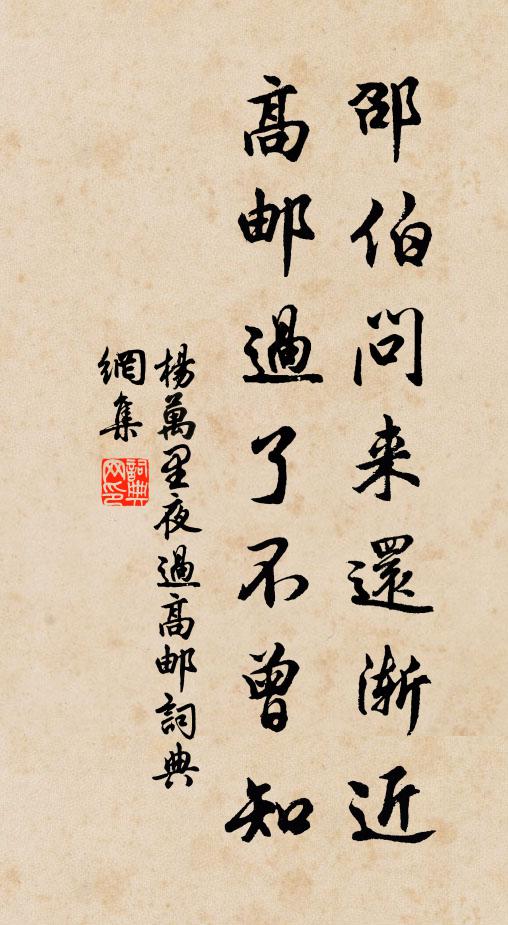 邵伯问来還渐近
高邮過了不曾知
楊萬里夜過高邮詞典
網集
詞典
网印